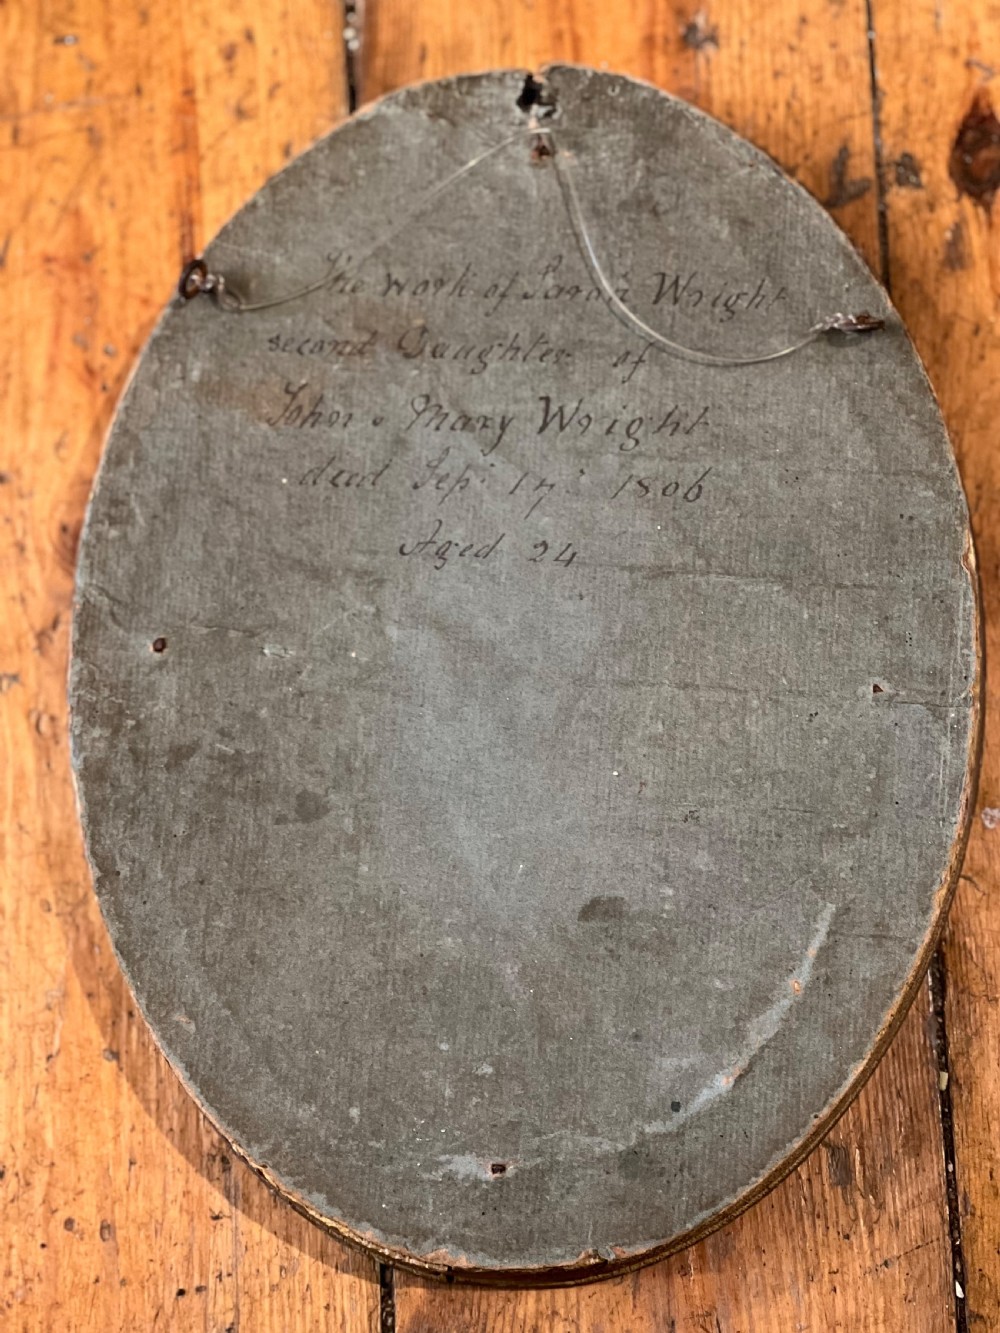 The work of Sarah Wright
second Daughter of
John & Mary Wright
died Sep: 17: 1806
Aged 24